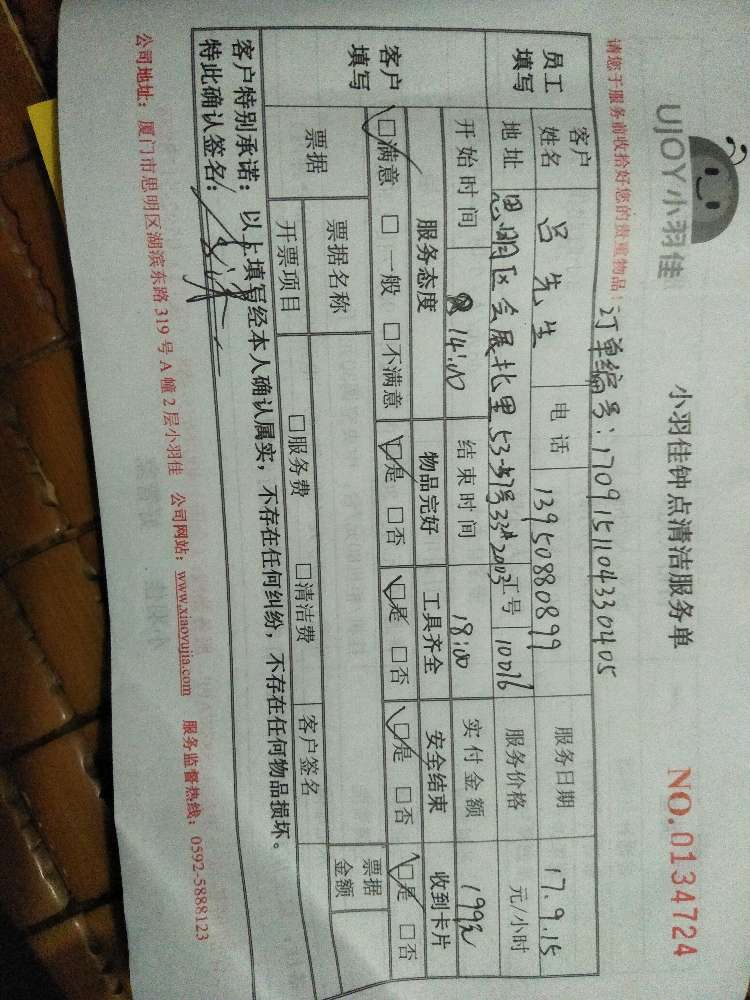 UJOY小羽佳
小羽佳钟点清洁服务单
NO.0134724
请您于服务前收拾好您的贵重物品!
订单编号:1709151104330405
员工填写
客户姓名 吕先生 电话 13950880899 服务日期 17.9.15
地址 思明区会展北里53-57号 2003 工号 10016 服务价格 元/小时
开始时间 14:00 结束时间 18:00 实付金额 199元
客户填写
服务态度 物品完好 工具齐全 安全结束 收到卡片
☑满意 □一般 □不满意 ☑是 □否 ☑是 □否 ☑是 □否 ☑是 □否
票据 票据名称 票据金额
开票项目 □服务费 □清洁费 客户签名
客户特别承诺:以上填写经本人确认属实,不存在任何纠纷,不存在任何物品损坏。
特此确认签名:
公司地址:厦门市思明区湖滨东路319号A幢2层小羽佳 公司网站:www.xiaoyujia.com 服务监督热线:0592-5888123